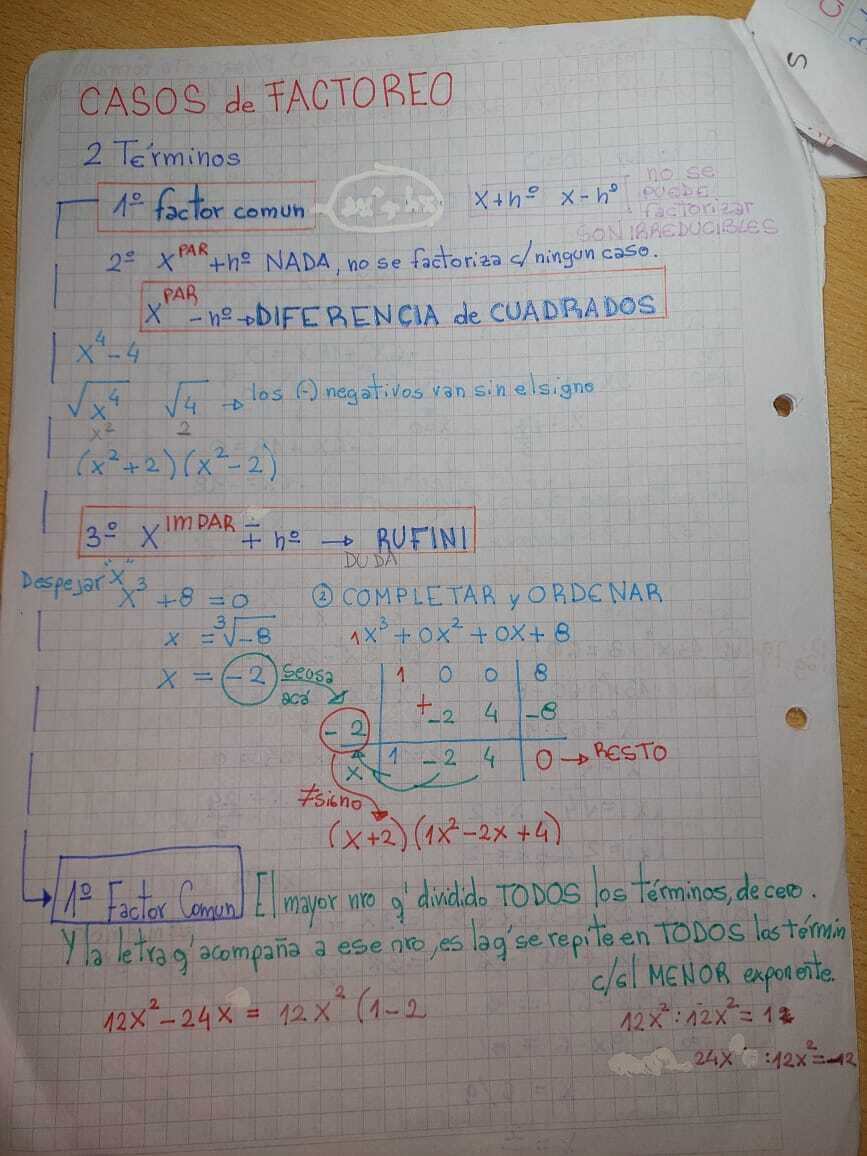 CASOS de FACTOREO
2 Términos
1º factor comun
x+nº x-nº
no se
PUEDE
factorizar
SON IRREDUCIBLES
2º x^PAR +nº NADA, no se factoriza c/ningun caso.
x^PAR -nº → DIFERENCIA de CUADRADOS
x⁴-4
√x⁴ √4 → los (-) negativos van sin el signo
x² 2
(x²+2)(x²-2)
3º x^IMPAR ± nº → RUFINI
DUDA
Despejar "x"
x³+8=0
② COMPLETAR y ORDENAR
x = ³√-8
1x³+0x²+0x+8
x = -2
se usa
acá
1 0 0 8
+ -2 4 -8
-2
x 1 -2 4 0 → RESTO
≠signo
(x+2)(1x²-2x+4)
1º Factor Comun El mayor nro q' dividido TODOS los términos, de cero.
Y la letra q' acompaña a ese nro, es la q' se repite en TODOS los términ
c/el MENOR exponente.
12x²-24x = 12x² (1-2
12x²:12x²=1
24x :12x²=-12